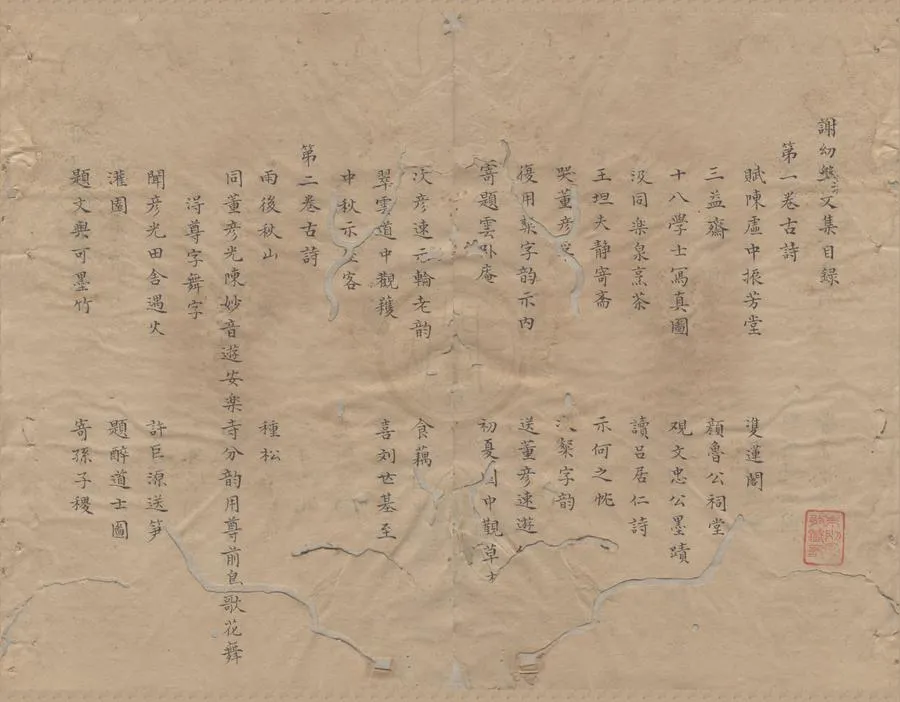 謝幼槃文集目錄
第一卷古詩
賦陳盧中振芳堂 雙蓮閣
三益齋 顏魯公祠堂
十八學士寫真圖 观文忠公墨蹟
汲同楽泉烹茶 讀吕居仁詩
王坦夫静寄斋 示何之忱
哭董彦 粲字韵
復用粲字韵示内 送董彦速遊
寄題雲卧庵 初夏 中觀草
次彦速元輪老韵 食藕
翠雲道中觀穫 喜刘世基至
中秋示 客
第二卷古詩
雨後秋山 種松
同董彦光陳妙音遊安楽寺分韵用尊前㠯歌花舞
得尊字舞字
聞彦光田舍遇火 許巨源送笋
灌園 題醉道士圖
題文與可墨竹 寄孫子稷